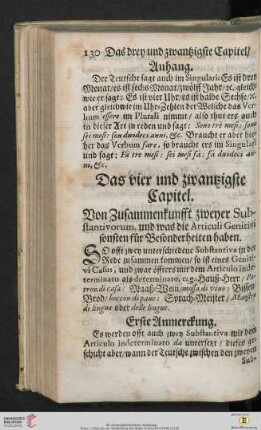 130 Das drey und zwantzigste Capitel/
Anhang.
Der Teutsche sagt auch im Singulari: Es ist drey
Monat/es ist sechs Monat/zwölff Jahr/ꝛc. gleich
wie er sagt: Es ist vier Uhr/es ist halbe Sechse/ꝛc.
aber gleichwie im Uhr-Zehlen der Welsche das Ver-
bum essere im Plurali nimmt/ also thut ers auch
in dieser Art zu reden und sagt: Sono trè mesi: sono
sei mesi: son duodeci anni, &c. Braucht er aber hie-
her das Verbum fare, so braucht ers im Singulari
und sagt: Fà tre mesi: sei mesi fà: fà duodeci an-
ni, &c.
Das vier und zwantzigste
Capitel.
Von Zusammenkunfft zweyer Sub-
stantivorum, und was die Articuli Genitivi
sonsten für Besonderheiten haben.
SO offt zwey unterschiedene Substantiva in der
Rede zusammen kommen/ so ist eines Geniti-
vi Casus, und zwar öffters mit dem Articulo inde-
terminato als determinato, e.g. Hauß-Herr: Pa-
tron di casa: Maaß-Wein/ mossa di vino: Bissen
Brod: boccon di pane: Sprach-Meister/ Maestro
di lingue oder delle lingue.
Erste Anmerckung.
Es werden offt auch zwey Substantiva mit dem
Articulo indeterminato da untersetzt / dieses ge-
schicht aber/ wann der Teutsche zwischen den zweyen
Sub-